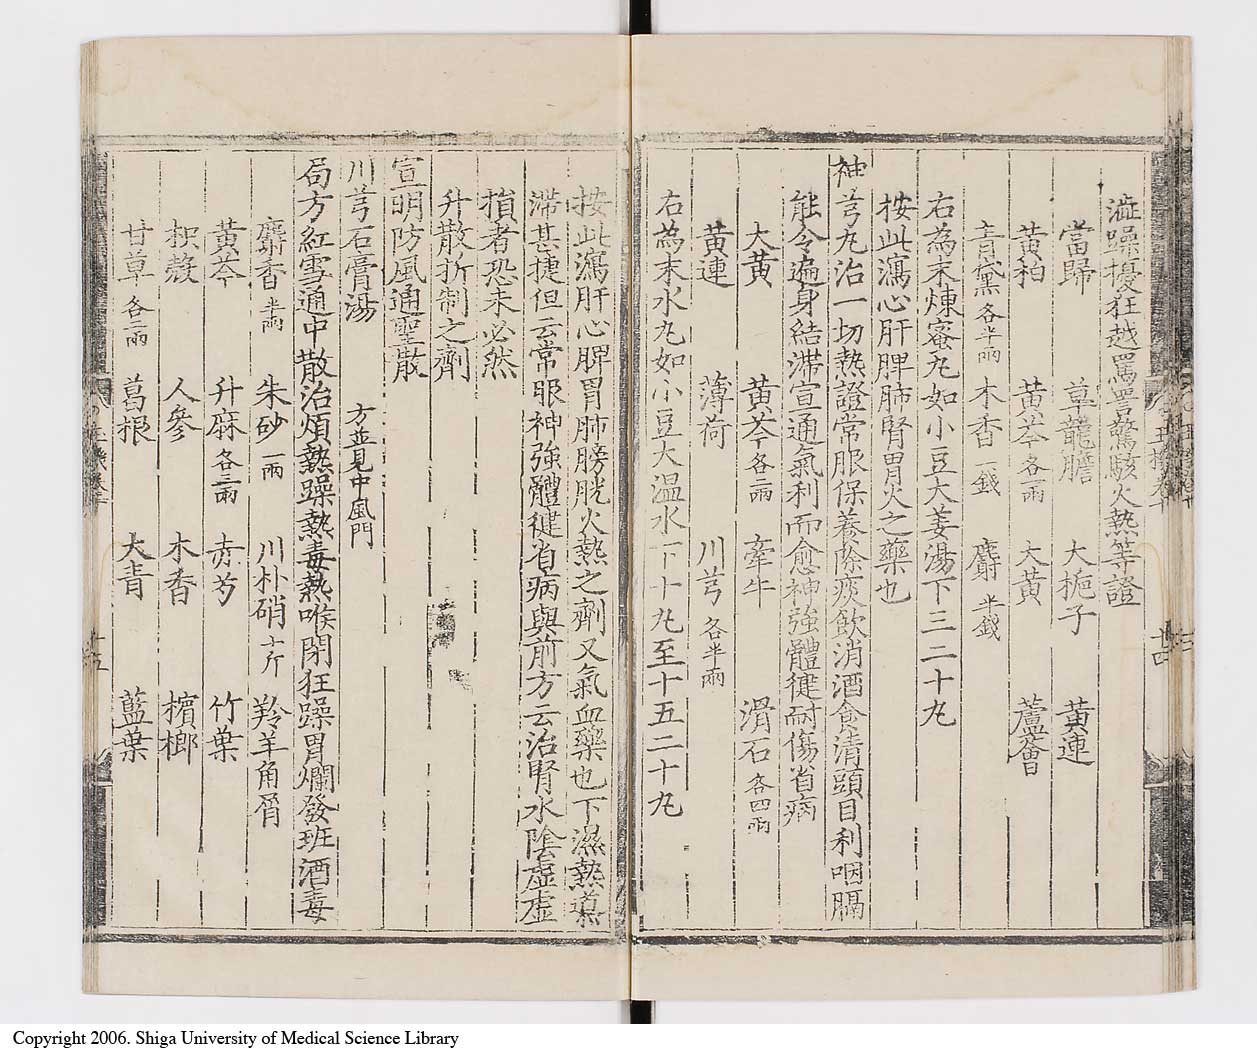 澁躁擾狂越罵詈驚駭火熱等證
當歸 草龍膽 大梔子 黃連
黃栢 黃芩各一兩 大黃 蘆薈
青黛各半兩 木香一錢 麝半錢
右為末煉蜜丸如小豆大姜湯下三二十丸
按此瀉心肝脾肺腎胃火之藥也
神芎丸治一切熱證常服保養除痰飲消酒食清頭目利咽膈
能令遍身結滯宣通氣利而愈神強體健耐傷省病
大黃 黃芩各二兩 牽牛 滑石各四兩
黃連 薄荷 川芎各半兩
右為末水丸如小豆大温水下十丸至十五二十丸
按此瀉肝心脾胃肺膀胱火熱之劑又氣血藥也下濕熱導
滯甚捷但云常服神強體健省病與前方云治腎水陰虛虛
損者恐未必然
升散折制之劑
宣明防風通聖散
川芎石膏湯 方並見中風門
局方紅雪通中散治煩熱躁熱毒熱喉閉狂躁胃爛發班酒毒
麝香半兩 朱砂一兩 川朴硝十斤 羚羊角屑
黃芩 升麻各三兩 赤芍 竹葉
枳殼 人參 木香 檳榔
甘草各二兩 葛根 大青 藍葉
Copyright 2006. Shiga University of Medical Science Library